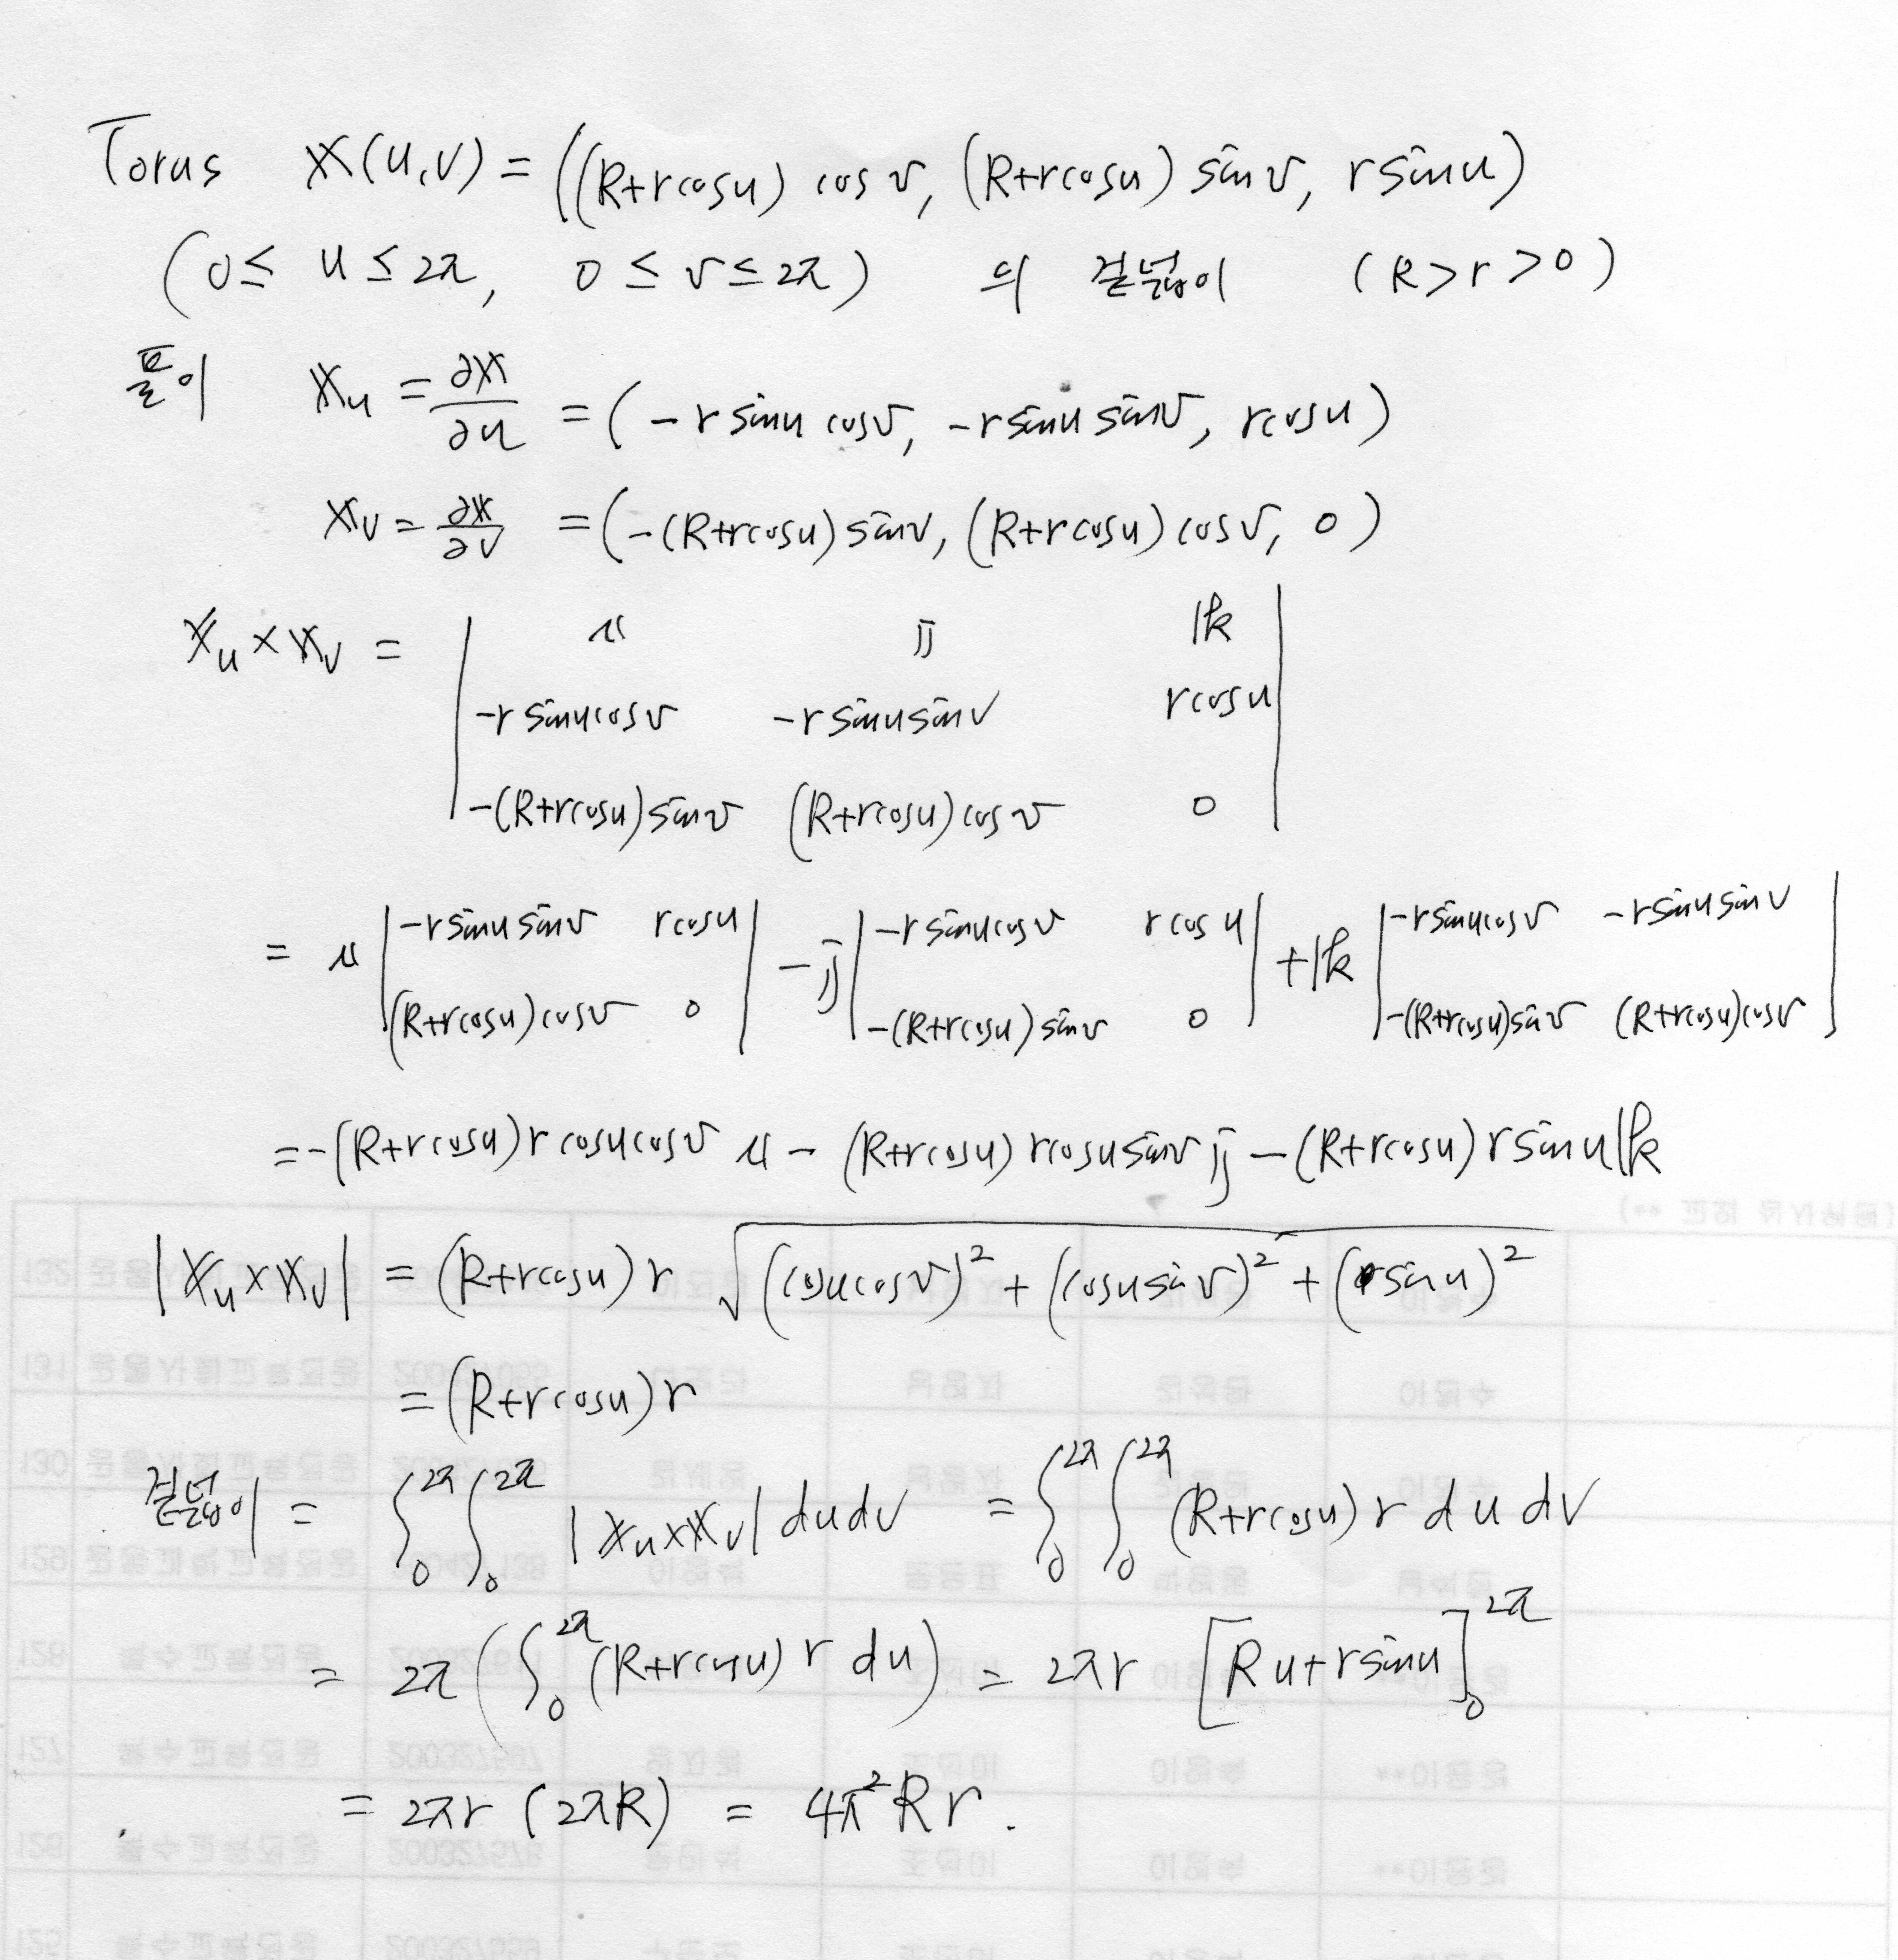 Torus 𝕏(u,v) = ((R+rcosu) cos v, (R+rcosu) sin v, r sinu)
(0 ≤ u ≤ 2π, 0 ≤ v ≤ 2π) 의 겉넓이 (R>r>0)
풀이 𝕏u = ∂𝕏/∂u = (-r sinu cosv, -r sinu sinv, rcosu)
𝕏v = ∂𝕏/∂v = (-(R+rcosu) sinv, (R+rcosu) cosv, 0)
𝕏u × 𝕏v = | 𝕚 𝕛 𝕜 |
| -r sinu cosv -r sinu sinv rcosu |
| -(R+rcosu) sinv (R+rcosu) cosv 0 |
= 𝕚 | -r sinu sinv rcosu | - 𝕛 | -r sinu cosv rcosu | + 𝕜 | -r sinu cosv -r sinu sinv |
| (R+rcosu) cosv 0 | | -(R+rcosu) sinv 0 | | -(R+rcosu) sinv (R+rcosu) cosv |
= -(R+rcosu) r cosu cosv 𝕚 - (R+rcosu) rcosu sinv 𝕛 - (R+rcosu) r sinu 𝕜
|𝕏u × 𝕏v| = (R+rcosu) r √((cosu cosv)² + (cosu sinv)² + (sinu)²)
= (R+rcosu) r
겉넓이 = ∫₀^2π ∫₀^2π |𝕏u × 𝕏v| du dv = ∫₀^2π ∫₀^2π (R+rcosu) r du dv
= 2π (∫₀^2π (R+rcosu) r du) = 2πr [Ru + r sinu]₀^2π
= 2πr (2πR) = 4π²Rr.